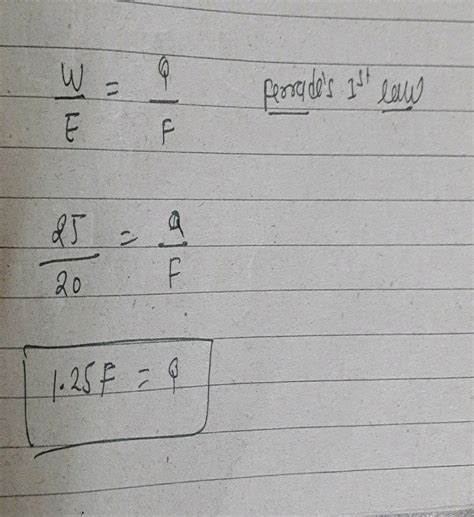 W/E = Q/F ferrade's 1st law
25/20 = Q/F
1.25F = Q